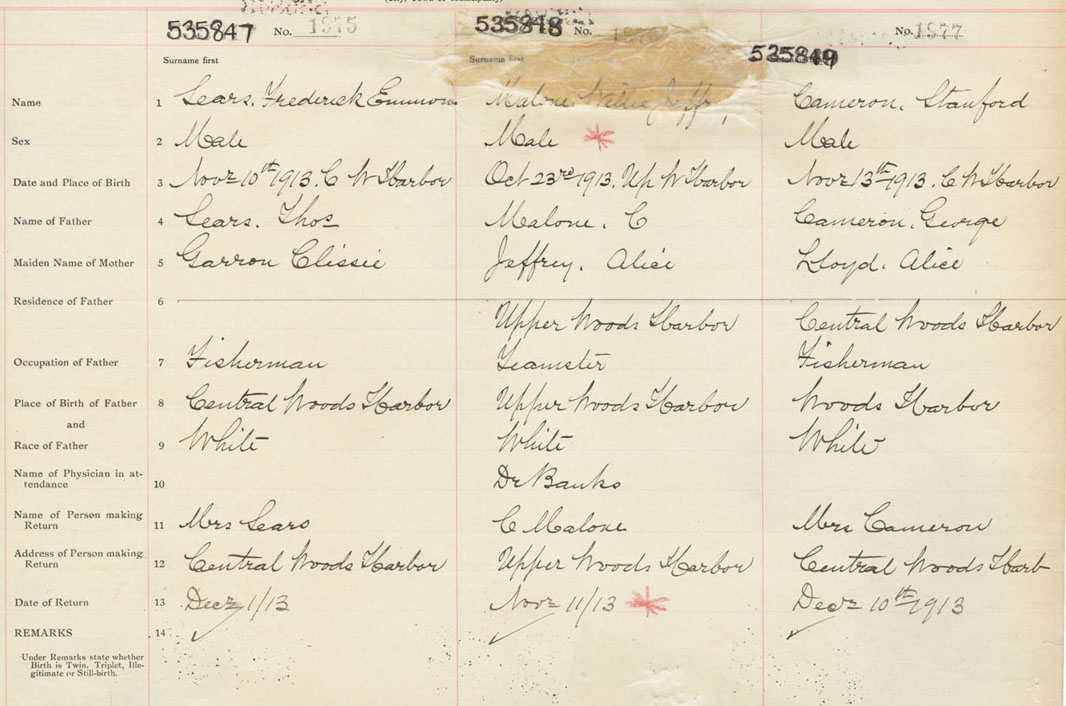 535847 No. 1875 535848 No. 535849 No. 1877
Surname first Surname first
Name 1 Sears, Frederick Emmons Malone, Willie Jeffr Cameron, Stanford
Sex 2 Male Male Male
Date and Place of Birth 3 Novr 10th 1913. C W Harbor Oct 23rd 1913. Up W Harbor Novr 13th 1913. C W Harbor
Name of Father 4 Sears. Thos Malone. C Cameron, George
Maiden Name of Mother 5 Garron Clissie Jeffrey. Alice Lloyd. Alice
Residence of Father 6 Upper Woods Harbor Central Woods Harbor
Occupation of Father 7 Fisherman Teamster Fisherman
Place of Birth of Father 8 Central Woods Harbor Upper Woods Harbor Woods Harbor
and
Race of Father 9 White White White
Name of Physician in at-
tendance 10 Dr Banks
Name of Person making
Return 11 Mrs Sears C Malone Mrs Cameron
Address of Person making
Return 12 Central Woods Harbor Upper Woods Harbor Central Woods Harb
Date of Return 13 Decr 1/13 Novr 11/13 Decr 10th 1913
REMARKS 14
Under Remarks state whether
Birth is Twin, Triplet, Ille-
gitimate or Still-birth.